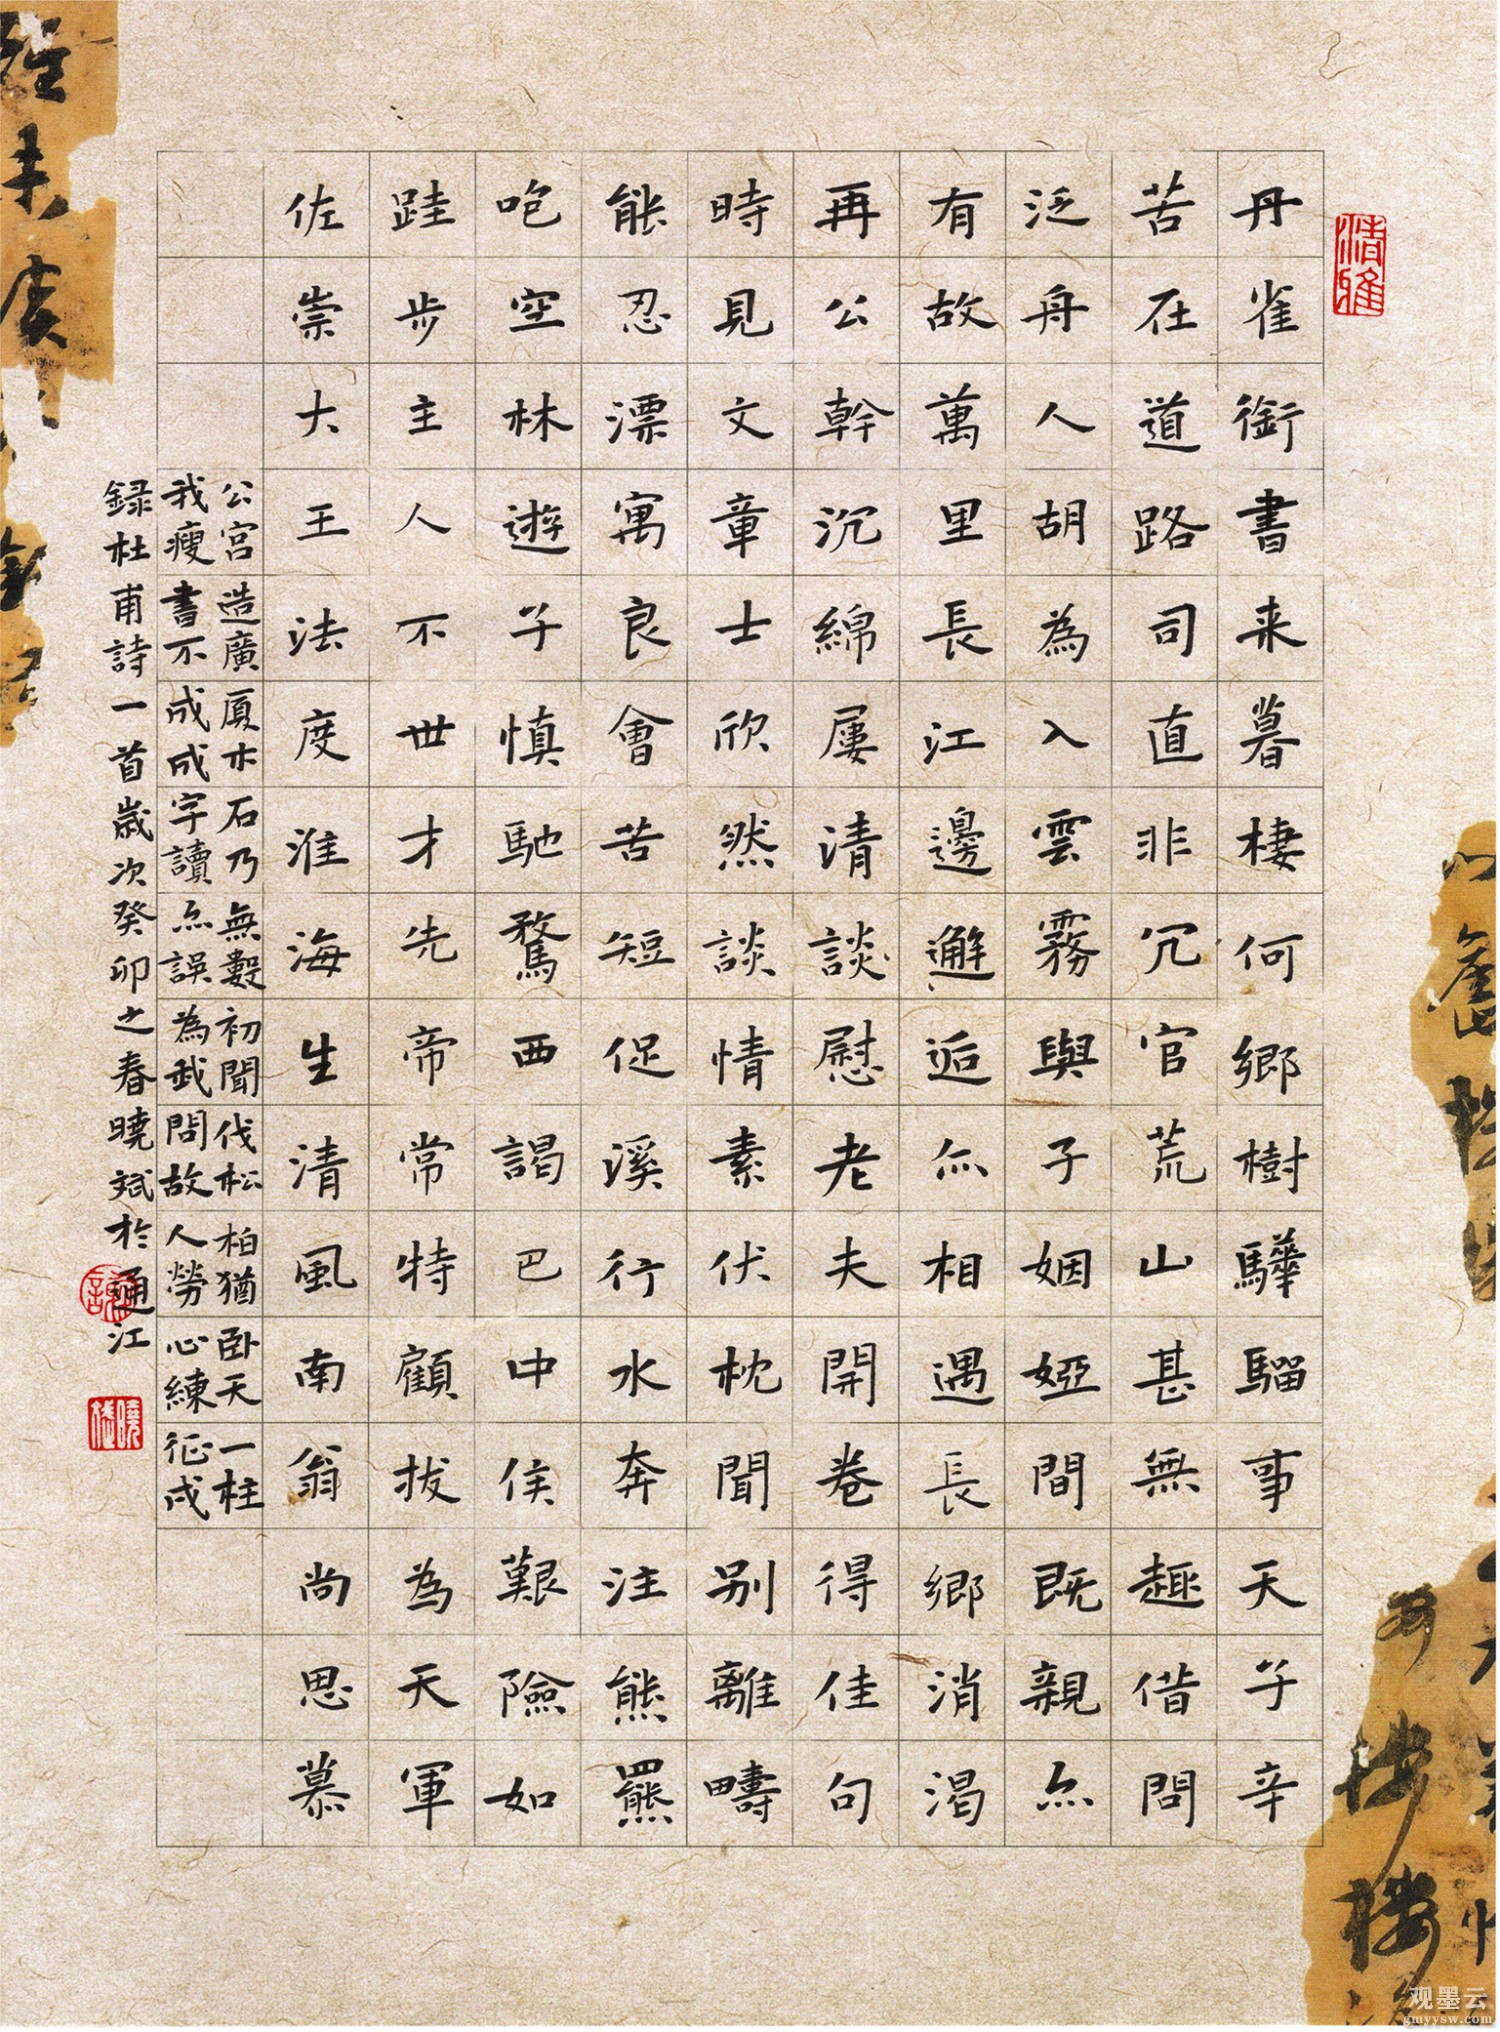 丹雀銜書来暮棲何鄉樹驊騮事天子辛
苦在道路司直非冗官荒山甚無趣借問
泛舟人胡為入雲霧與子姻婭間既親亦
有故萬里長江邊邂逅亦相遇長鄉消渴
再公幹沉綿屢清談慰老夫開卷得佳句
時見文章士欣然談情素伏枕聞別離疇
能忍漂寓良會苦短促溪行水奔注熊羆
咆空林遊子慎馳騖西謁巴中侯艱險如
跬步主人不世才先帝常特顧拔為天軍
佐崇大王法度淮海生清風南翁尚思慕
公宮造廣厦木石乃無數初聞伐松柏猶卧天一柱
我瘦書不成成字讀亦誤為我問故人勞心練征戍
録杜甫詩一首歲次癸卯之春曉斌於通江
清雅
观墨云
gmyysw.com